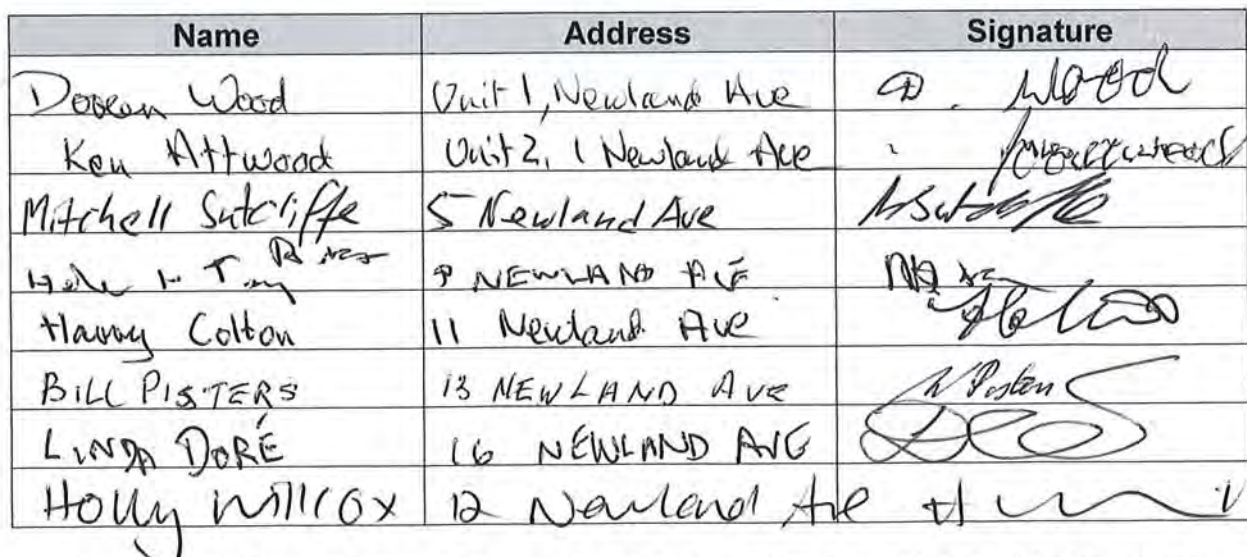 Name Address Signature
Doreen Wood Unit 1, Newland Ave D. Wood
Ken Attwood Unit 2, 1 Newland Ave
Mitchell Sutcliffe 5 Newland Ave MSutcliffe
9 NEWLAND AVE
Harry Colton 11 Newland Ave
BILL PISTERS 13 NEWLAND AVE
LINDA DORÉ 16 NEWLAND AVE
Holly Willcox 12 Newland Ave